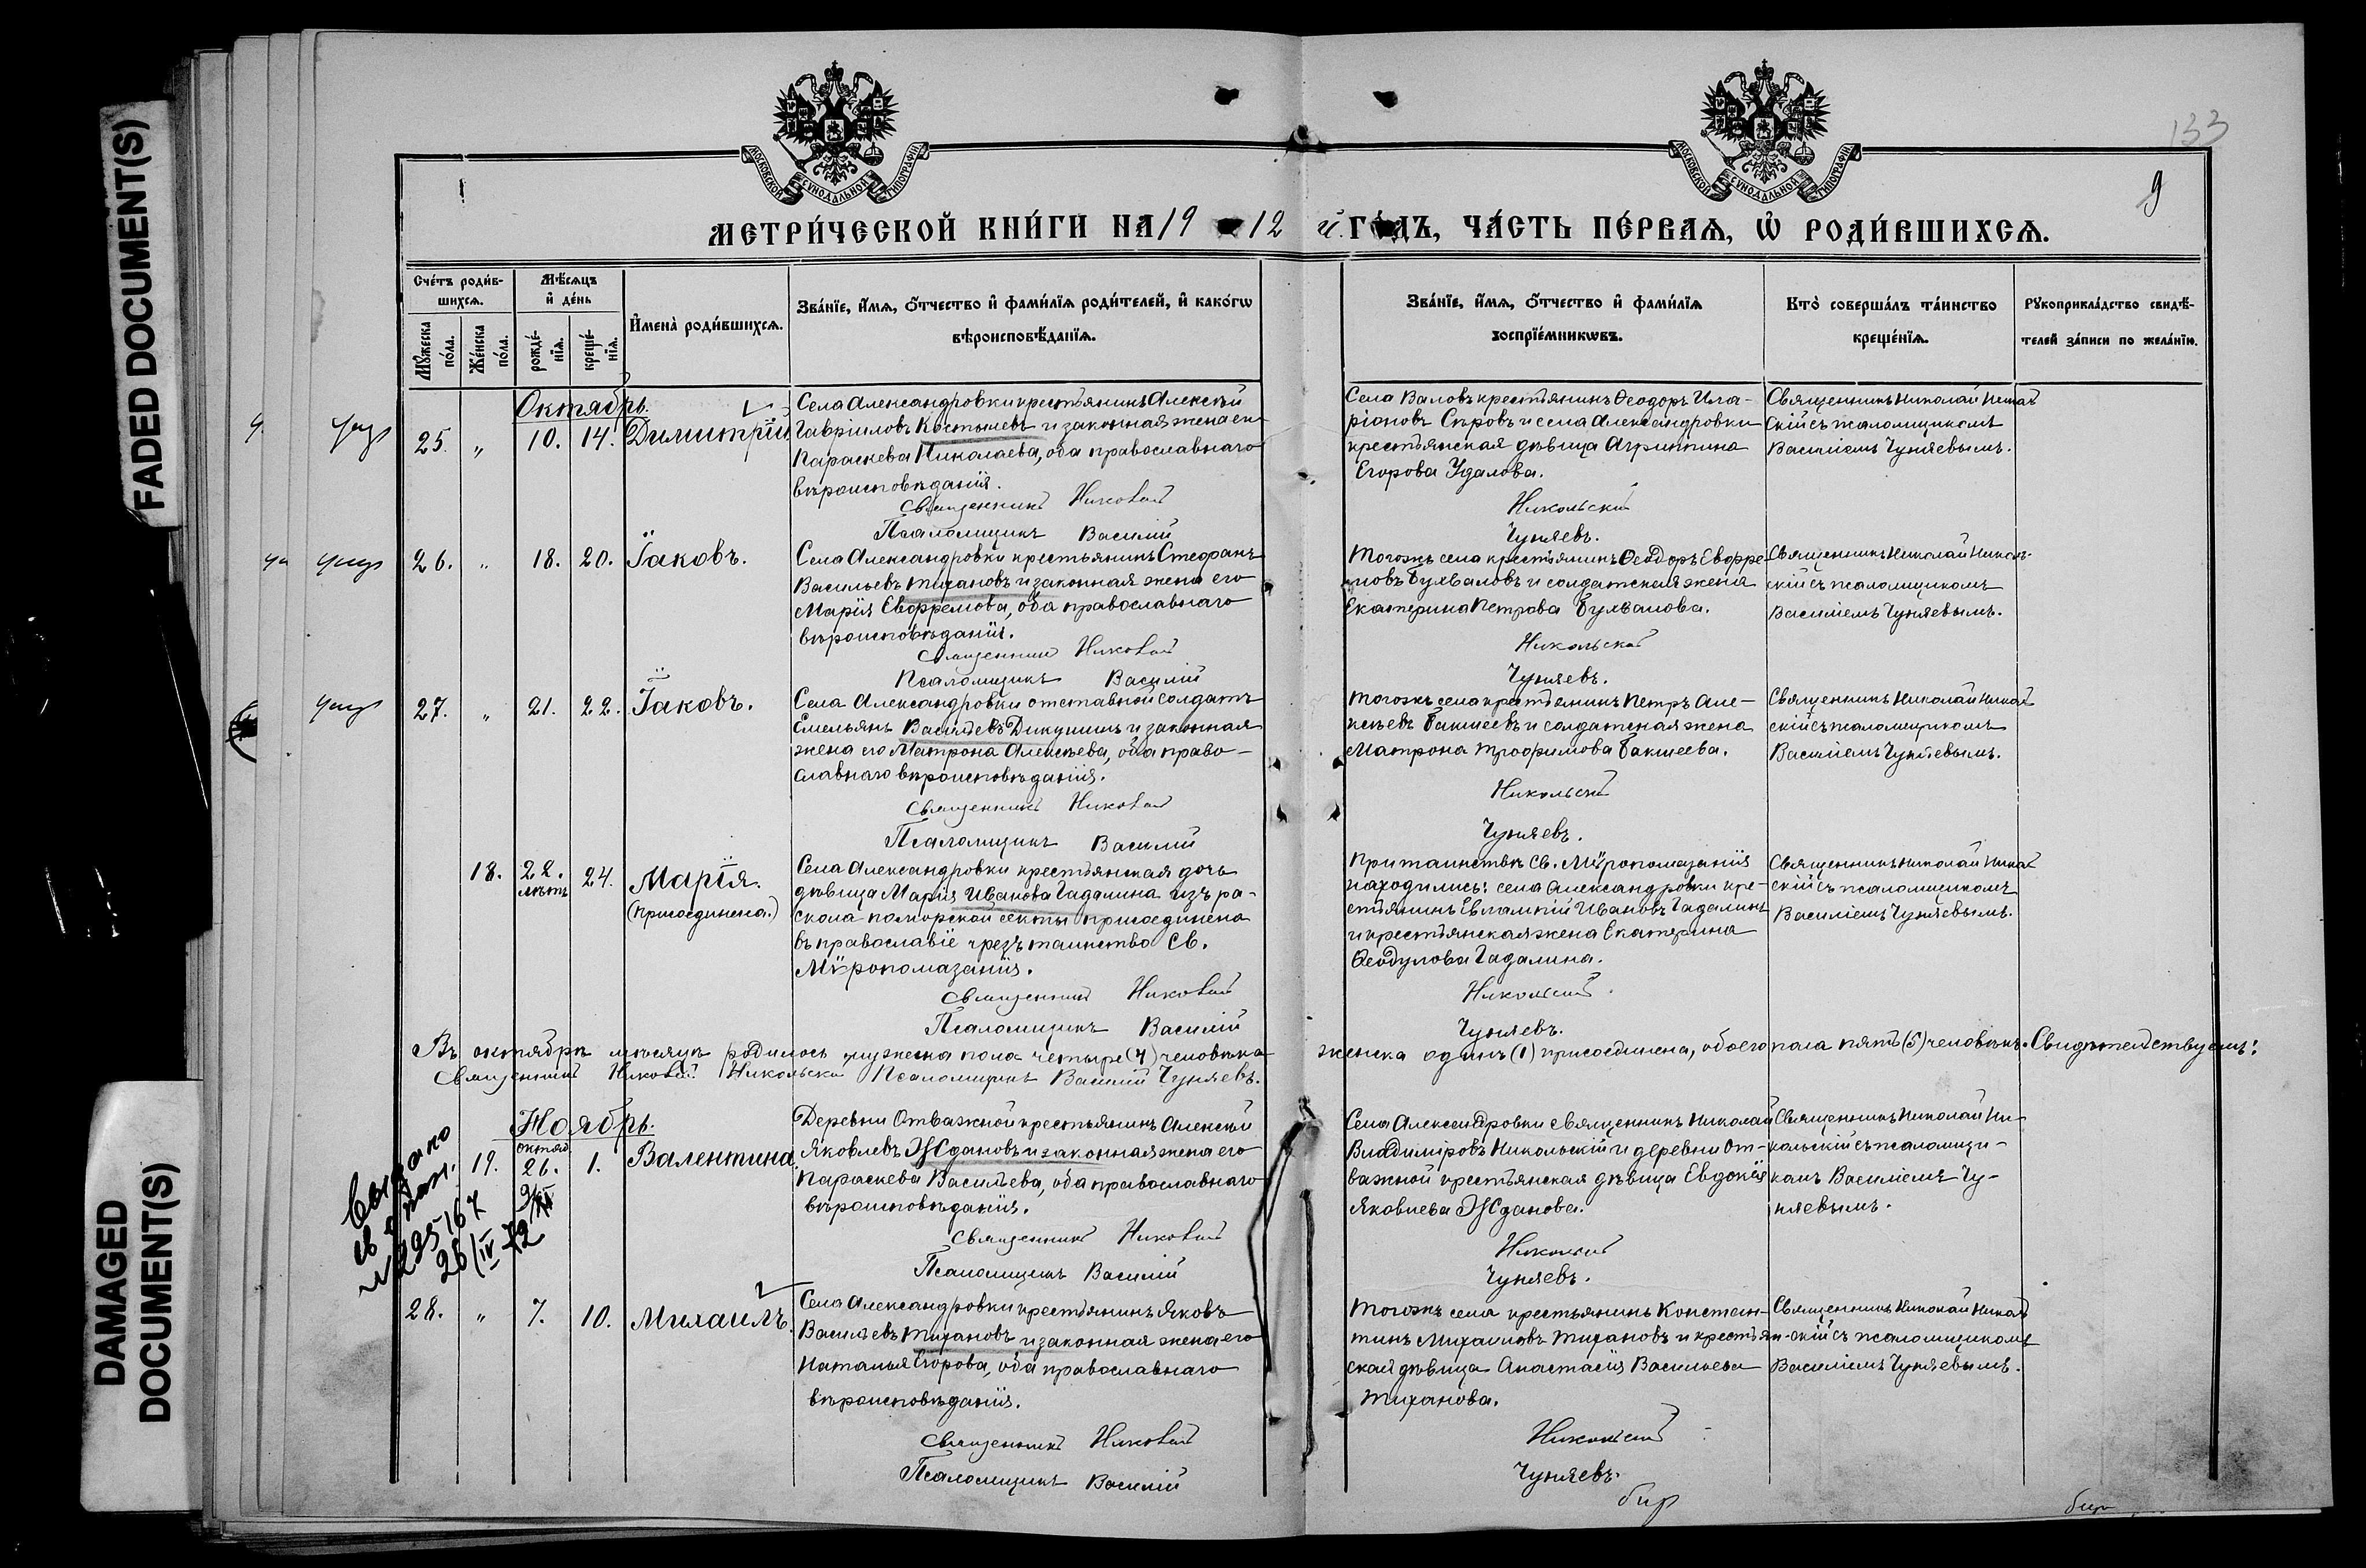 FADED DOCUMENT(S)
DAMAGED
DOCUMENT(S)
МОСКОВСКОЙ СѴНОДАЛЬНОЙ ТИПОГРАФІИ
МОСКОВСКОЙ СѴНОДАЛЬНОЙ ТИПОГРАФІИ
133
9
МЕТРИ́ЧЕСКОЙ КНИ́ГИ НА 1912 й ГО́ДЪ, ЧА́СТЬ ПЕ́РВАѦ, Ѡ҆ РОДИ́ВШИХСѦ.
Сче́тъ роди́в-
шихсѧ.
Мꙋ́жеска
по́ла.
Же́нска
по́ла.
Мѣ́сѧцъ
и҆ де́нь
рожде́-
нїѧ.
креще́-
нїѧ.
И҆мена̀ роди́вшихсѧ.
Зва́нїе, и҆́мѧ, ѻ҆́тчество и҆ фами́лїѧ роди́телей, и҆ како́гѡ
вѣроисповѣ́данїѧ.
Зва́нїе, и҆́мѧ, ѻ҆́тчество и҆ фами́лїѧ
воспрїе́мникѡвъ.
Кто̀ соверша́лъ та́инство
креще́нїѧ.
Рꙋкоприкла́дство свидѣ́-
телей за́писи по жела́нїю.
Октябрь.
25. " 10. 14. Димитрій
Села Александровки крестьянинъ Алексѣй
Гавриловъ Костылевъ и законная жена его
Параскева Николаева, оба православнаго
вѣроисповѣданія.
Священникъ Николай
Псаломщикъ Василій
Села Валовъ крестьянинъ Ѳеодоръ Ила-
ріоновъ Сѣровъ и села Александровки
крестьянская дѣвица Агриппина
Егорова Удалова.
Никольскій
Чуняевъ.
Священникъ Николай Николь
скій съ псаломщикомъ
Василіемъ Чуняевымъ.
26. " 18. 20. Іаковъ.
Села Александровки крестьянинъ Стефанъ
Васильевъ Тихановъ и законная жена его
Марія Евфремова, оба православнаго
вѣроисповѣданія.
Священникъ Николай
Псаломщикъ Василій
Тогожъ села крестьянинъ Ѳеодоръ Евфре-
мовъ Бухваловъ и солдатская жена
Екатерина Петрова Бухвалова.
Никольскій
Чуняевъ.
Священникъ Николай Николь-
скій съ псаломщикомъ
Василіемъ Чуняевымъ.
27. " 21. 22. Іаковъ.
Села Александровки отставной солдатъ
Емельянъ Васильевъ Дикушинъ и законная
жена его Матрона Алексѣева, оба право-
славнаго вѣроисповѣданія.
Священникъ Николай
Псаломщикъ Василій
Тогожъ села крестьянинъ Петръ Але-
ксѣевъ Бакшеевъ и солдатская жена
Матрона Трофимова Бакшеева.
Никольскій
Чуняевъ.
Священникъ Николай Николь
скій съ псаломщикомъ
Василіемъ Чуняевымъ.
18. 22. лѣтъ 24. Марія.
(присоединена.)
Села Александровки крестьянская дочь
дѣвица Марія Иванова Гадалина изъ ра-
скола поморской секты присоединена
въ православіе чрезъ таинство Св.
Мѵропомазанія.
Священникъ Николай
Псаломщикъ Василій
При таинствѣ Св. Мѵропомазанія
находились: села Александровки кре-
стьянинъ Евлампій Ивановъ Гадалинъ
и крестьянская жена Екатерина
Ѳеодулова Гадалина.
Никольскій
Чуняевъ.
Священникъ Николай Николь
скій съ псаломщикомъ
Василіемъ Чуняевымъ.
Въ октябрѣ мѣсяцѣ родилось мужеска пола четыре (4) человѣка женска одинъ (1) присоединена, обоего пола пять (5) человѣкъ. Свидѣтельствуемъ:
Священникъ Николай Никольскій Псаломщикъ Василій Чуняевъ.
Ноябрь.
19. октяб. 26. 1. Валентина.
Деревни Отважной крестьянинъ Алексѣй
Яковлевъ Ждановъ и законная жена его
Параскева Васильева, оба православнаго
вѣроисповѣданія.
Священникъ Николай
Псаломщикъ Василій
Села Александровки священникъ Николай
Владиміровъ Никольскій и деревни От-
важной крестьянская дѣвица Евдокія
Яковлева Жданова.
Никольскій
Чуняевъ.
Священникъ Николай Ни-
кольскій съ псаломщи-
комъ Василіемъ Чу-
няевымъ.
26/IV
28. " 7. 10. Михаилъ.
Села Александровки крестьянинъ Яковъ
Васильевъ Тихановъ и законная жена его
Наталья Егорова, оба православнаго
вѣроисповѣданія.
Священникъ Николай
Псаломщикъ Василій
Тогожъ села крестьянинъ Констан-
тинъ Михаиловъ Тихановъ и крестьян-
ская дѣвица Анастасія Васильева
Тиханова.
Никольскій
Чуняевъ.
Священникъ Николай Николь
скій съ псаломщикомъ
Василіемъ Чуняевымъ.